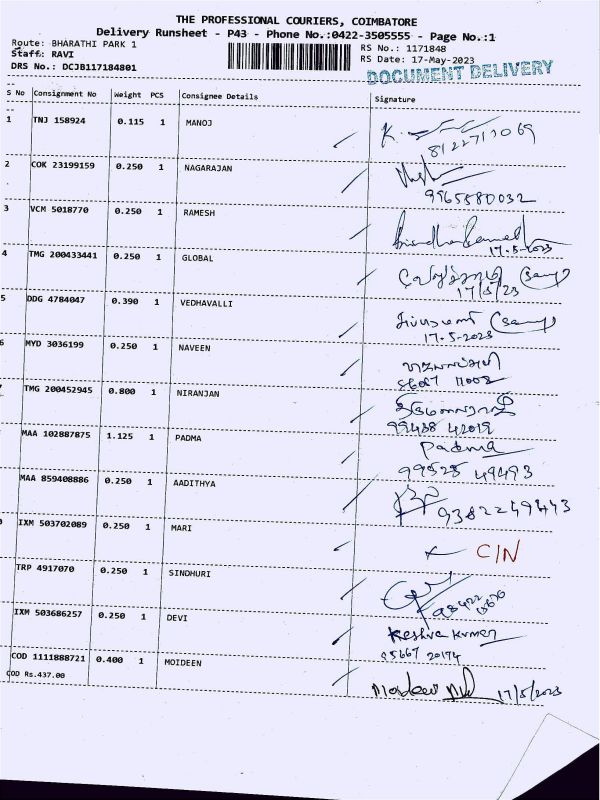 THE PROFESSIONAL COURIERS, COIMBATORE
Delivery Runsheet - P43 - Phone No.:0422-3505555 - Page No.:1
Route: BHARATHI PARK 1 RS No.: 1171848
Staff: RAVI RS Date: 17-May-2023
DRS No.: DCJB117184801 DOCUMENT DELIVERY
S No Consignment No Weight PCS Consignee Details Signature
1 TNJ 158924 0.115 1 MANOJ
8122717069
2 COK 23199159 0.250 1 NAGARAJAN
9965580032
3 VCM 5018770 0.250 1 RAMESH
17.5-2023
4 TMG 200433441 0.250 1 GLOBAL
17/5/23
5 DDG 4784047 0.390 1 VEDHAVALLI
17.5-2023
6 MYD 3036199 0.250 1 NAVEEN
11002
TMG 200452945 0.800 1 NIRANJAN
99438 42019
MAA 102887875 1.125 1 PADMA Padma
99525 49493
MAA 859408886 0.250 1 AADITHYA
9382249443
IXM 503702089 0.250 1 MARI C/N
TRP 4917070 0.250 1 SINDHURI
IXM 503686257 0.250 1 DEVI Keshva kumar
95667 20174
COD 1111888721 0.400 1 MOIDEEN
COD Rs.437.00 17/5/2023